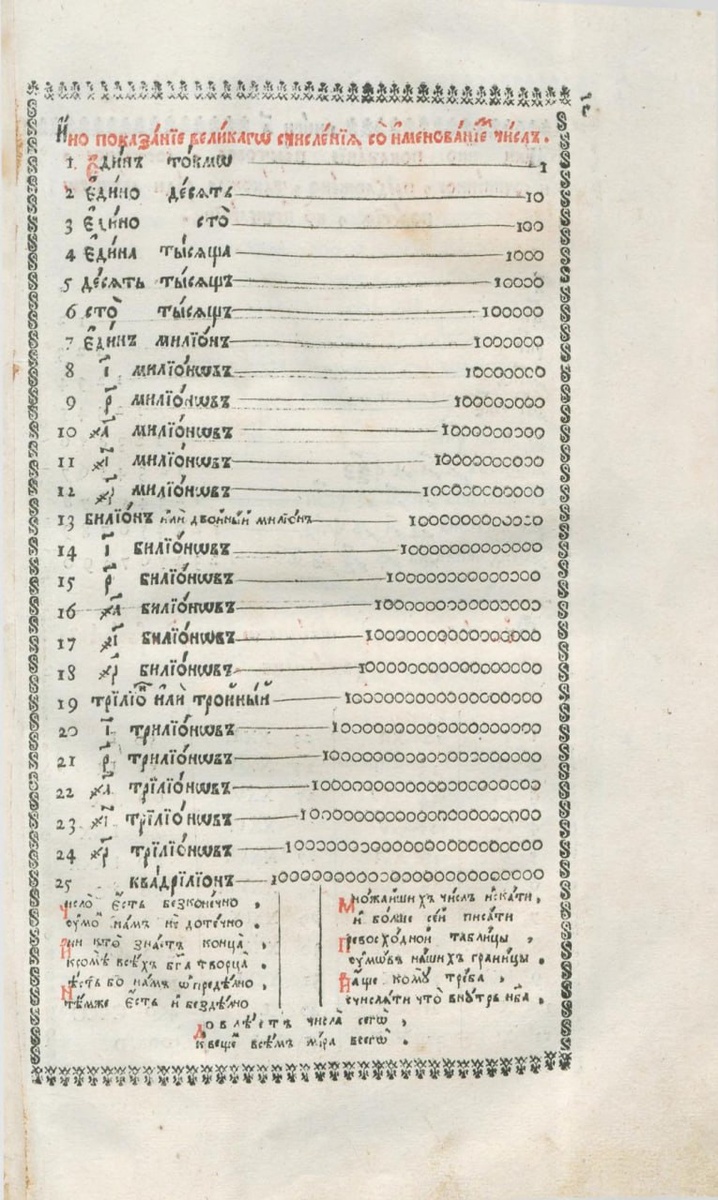 И҆́но показа́нїе вели́кагѡ счисле́нїѧ со̀ и҆менова́нїемъ чи́слъ.
1 Е҆ди́нъ то́кмѡ 1
2 є҆ди́но де́сѧть 10
3 є҆ди́но сто̀ 100
4 є҆ди́на ты́сѧща 1000
5 де́сѧть ты́сѧщъ 10000
6 сто̀ ты́сѧщъ 100000
7 є҆ди́нъ милїо́нъ 1000000
8 і҃ милїо́нѡвъ 10000000
9 р҃ милїо́нѡвъ 100000000
10 ҂а҃ милїо́нѡвъ 1000000000
11 ҂і҃ милїо́нѡвъ 10000000000
12 ҂р҃ милїо́нѡвъ 100000000000
13 билїо́нъ и҆лѝ двойны́й милїо́нъ 1000000000000
14 і҃ билїо́нѡвъ 10000000000000
15 р҃ билїо́нѡвъ 100000000000000
16 ҂а҃ билїо́нѡвъ 1000000000000000
17 ҂і҃ билїо́нѡвъ 10000000000000000
18 ҂р҃ билїо́нѡвъ 100000000000000000
19 трїлїо́н и҆лѝ тройны́й 1000000000000000000
20 і҃ трилїо́нѡвъ 10000000000000000000
21 р҃ трилїо́нѡвъ 100000000000000000000
22 ҂а҃ трїлїо́нѡвъ 1000000000000000000000
23 ҂і҃ трїлїо́нѡвъ 10000000000000000000000
24 ҂р҃ трїлїо́нѡвъ 100000000000000000000000
25 ква́дрїлїонъ 1000000000000000000000000
Число̀ є҆́сть безконе́чно,
ᲂу҆мо́мъ на́мъ не доте́чно.
И҆ никто̀ зна́етъ конца̀,
кромѣ̀ всѣ́хъ бг҃а творца̀.
Нѣ́сть бо на́мъ ѡ҆предѣ́лно,
тѣ́мже є҆́сть и҆ бездѣ́лно
Мно́жайшихъ чи́слъ и҆ска́ти,
и҆ бо́лше сеѝ писа́ти
Превосхо́дной табли́цы,
ᲂу҆мѡ́въ на́шихъ грани́цы.
И҆ а҆́ще кому̀ тре́ба,
счислѧ́ти что̀ вну́трь не́ба,
Довлѣ́етъ числа̀ сегѡ̀,
к веще́мъ всѣ́мъ мі́ра всегѡ̀.